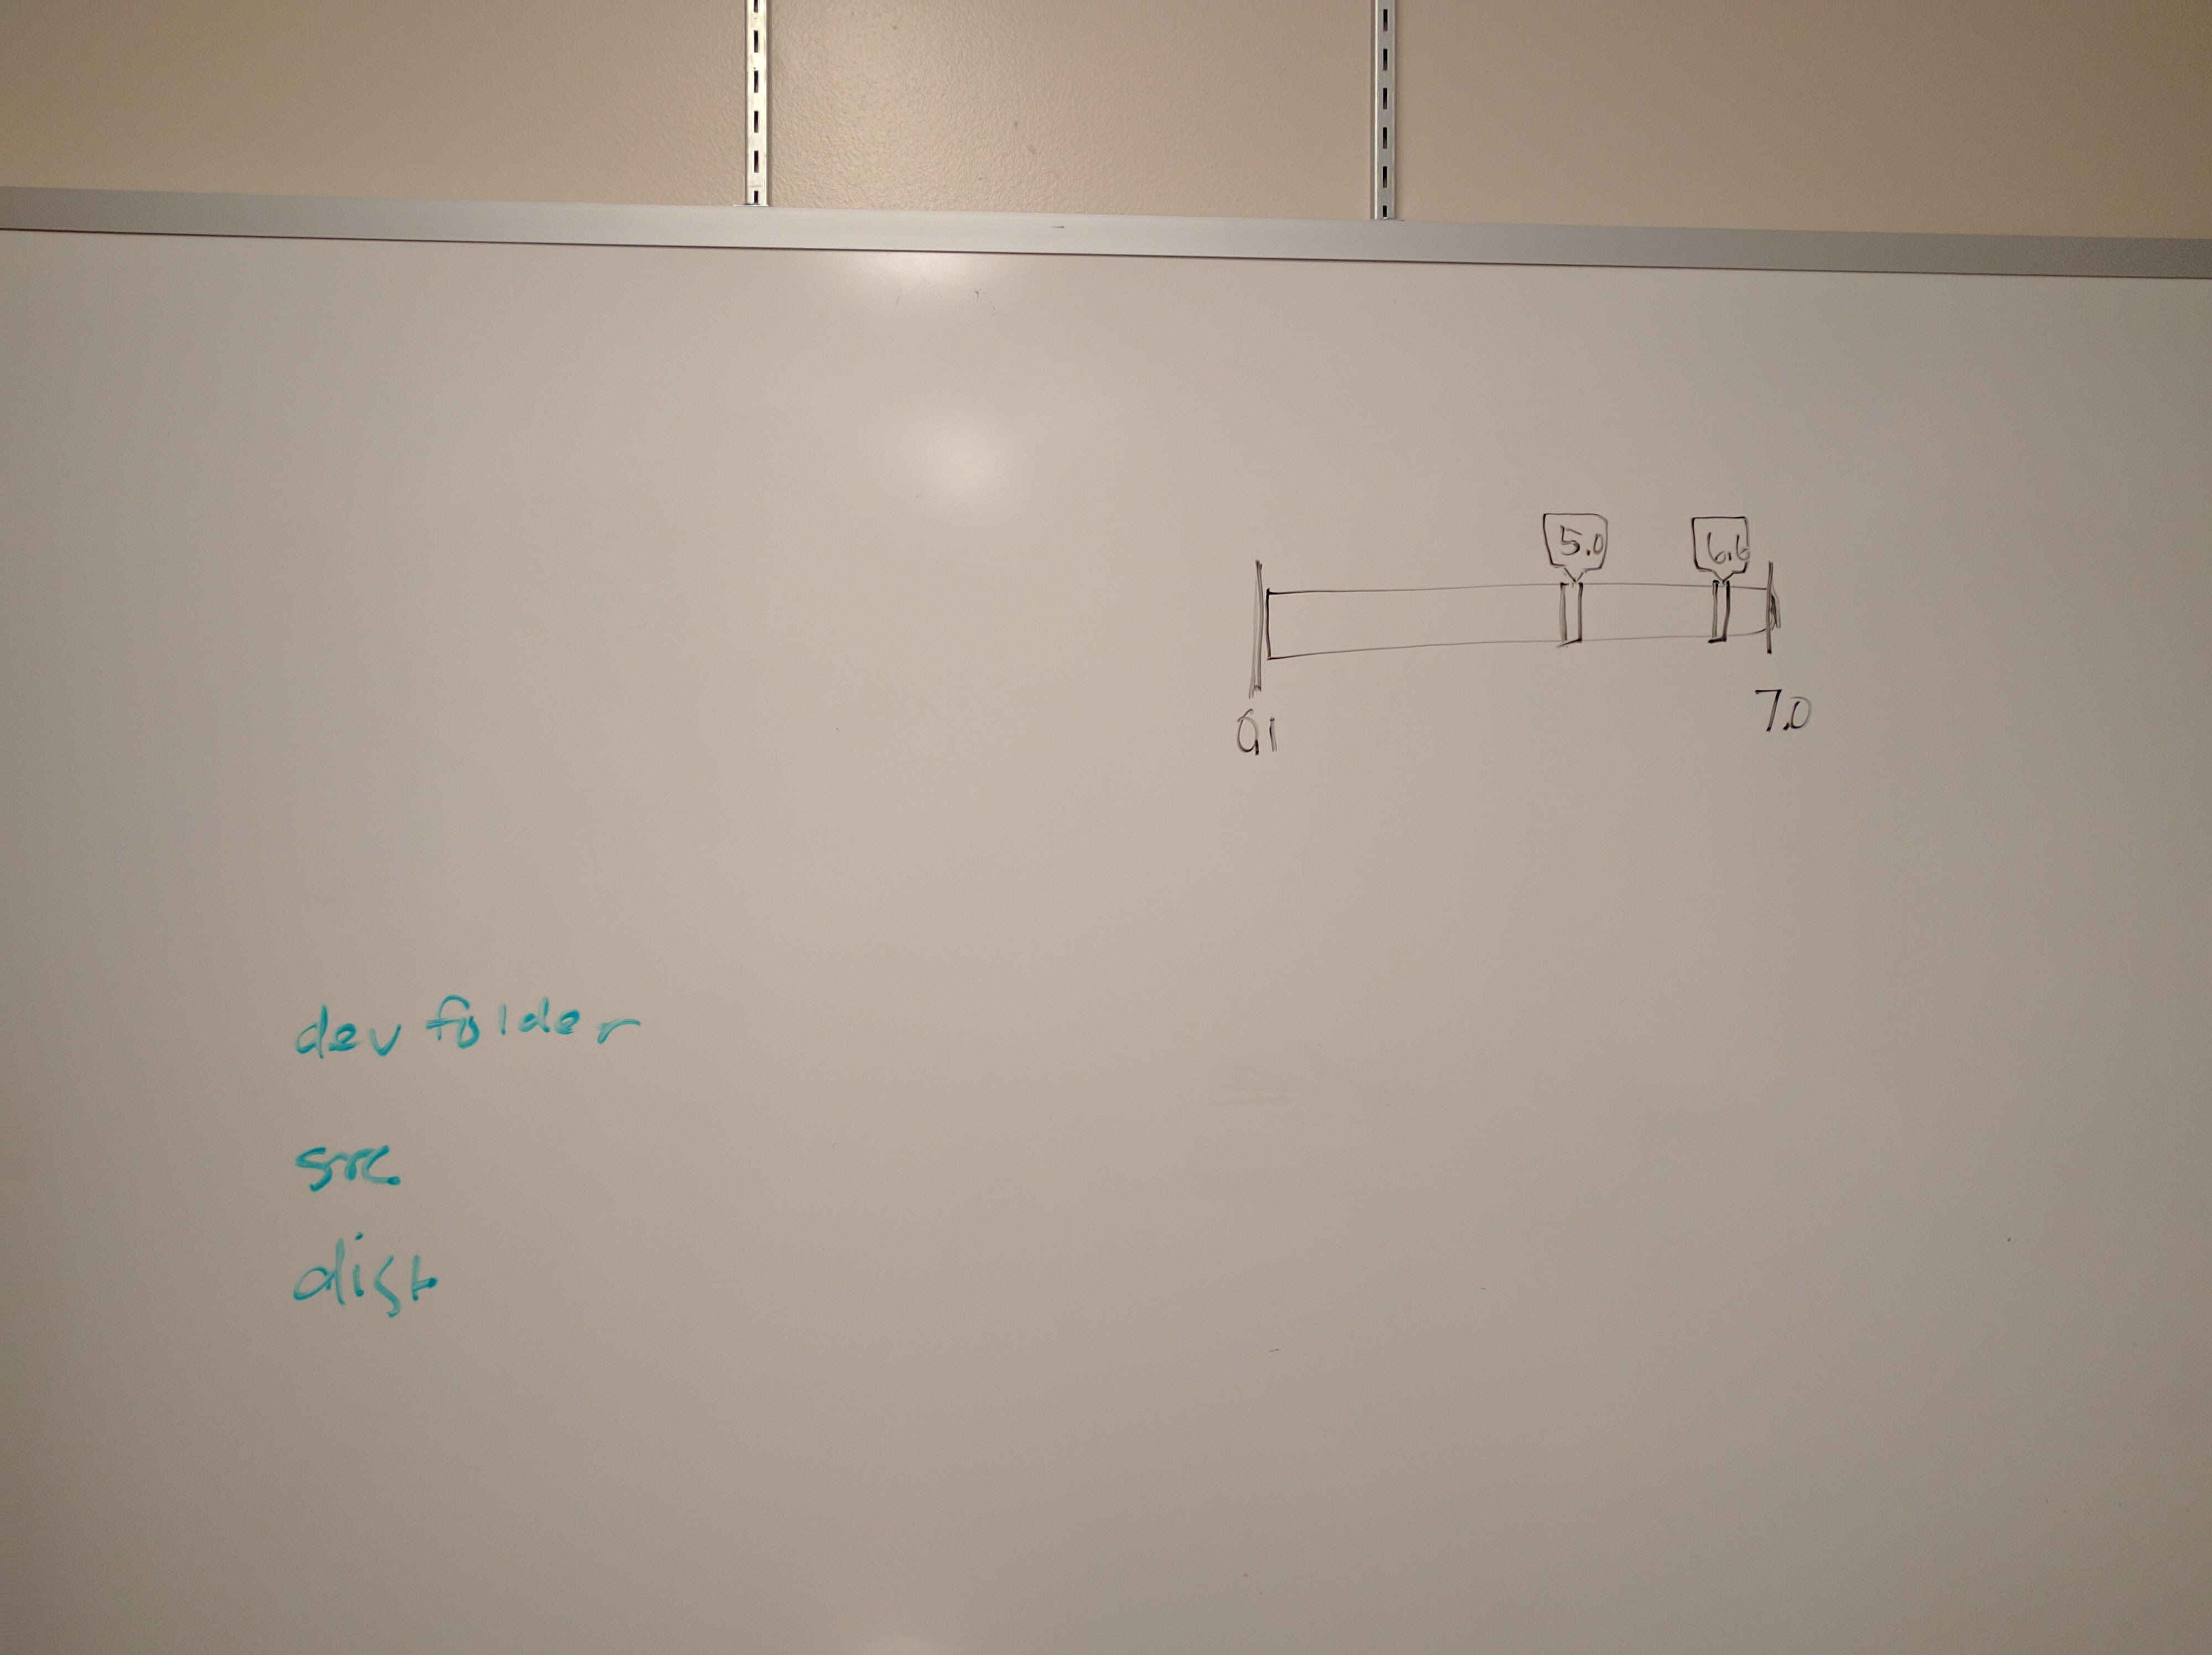 5.0 6.6
0.1 7.0
dev folder
src
dist